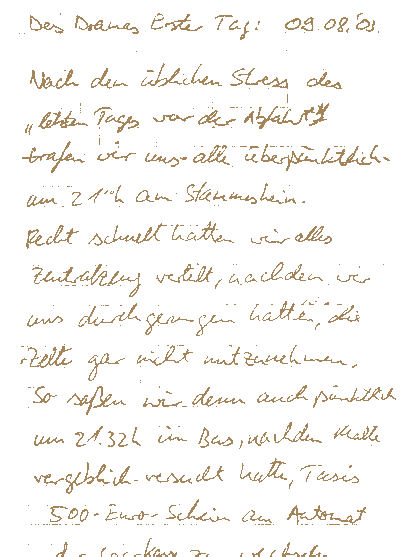 Des Dramas Erster Tag: 09.08.03
Nach dem üblichen Stress des
„letzten Tages vor der Abfahrt"
trafen wir uns alle überpünktlich
um 21ºº h am Stammesheim.
Recht schnell hatten wir alles
verteilt, nachdem wir
uns durchgerungen hatten, die
Zelte gar nicht mitzunehmen.
So saßen wir denn auch pünktlich
um 21.32h im Bus, nachdem Malte
vergeblich versucht hatte,
500-Euro-Schein am Automat
der Sparkasse zu wechseln.